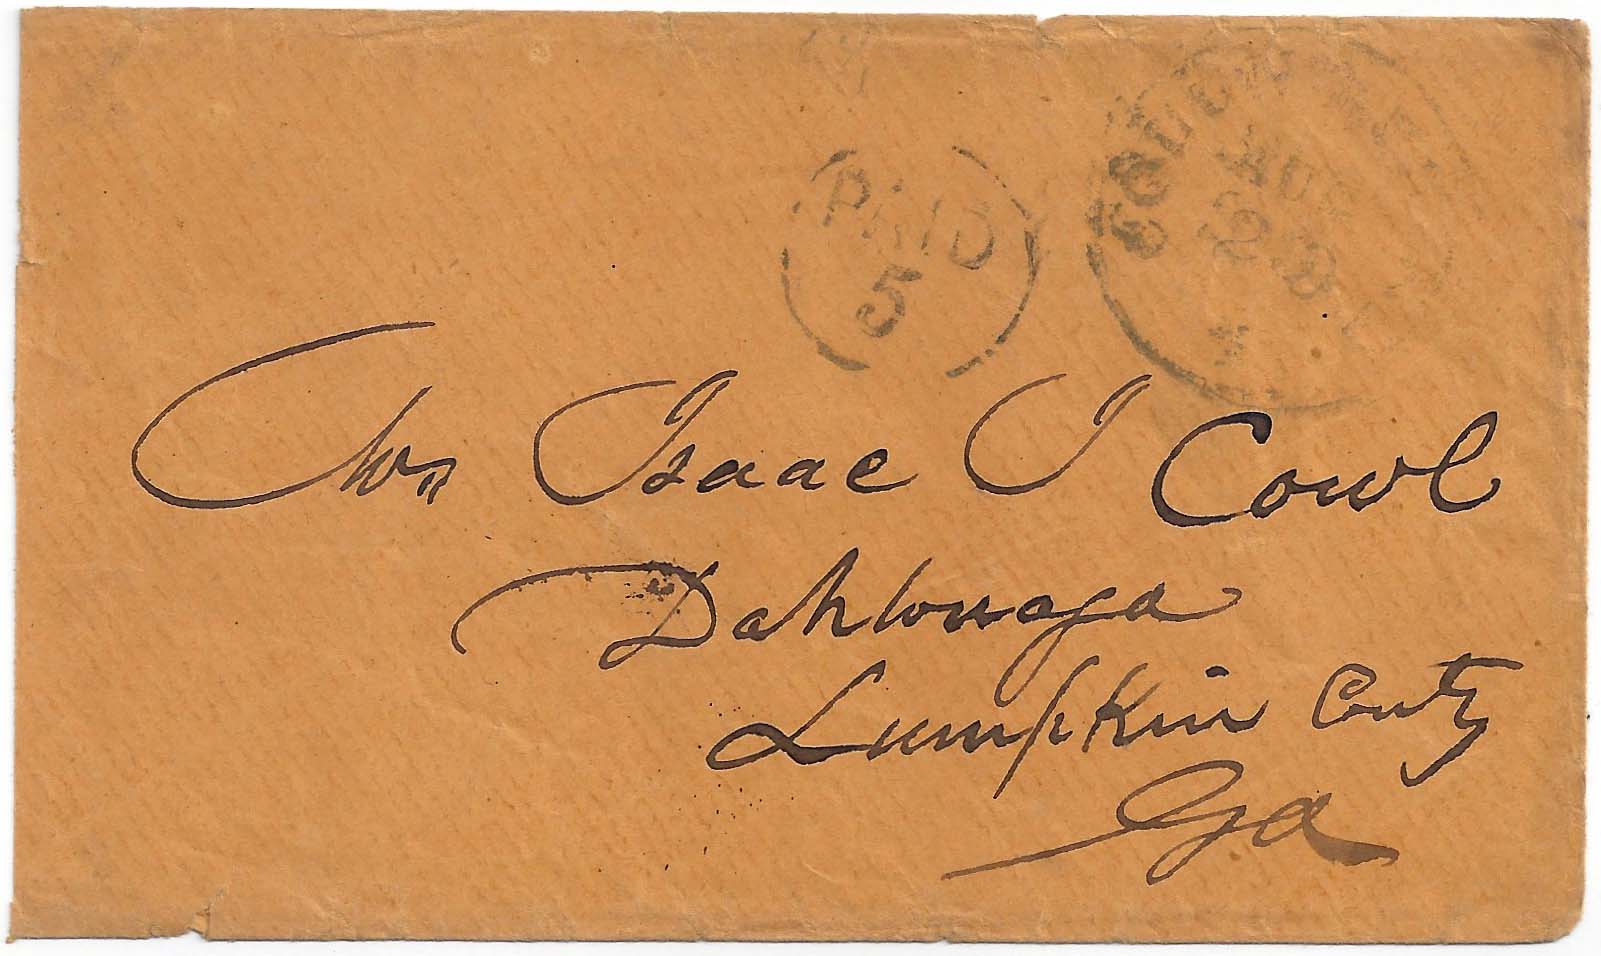 PAID
5
AUG
Mrs Isaac I Cowl
Dahlonega
Lumpkin Cnty
Ga